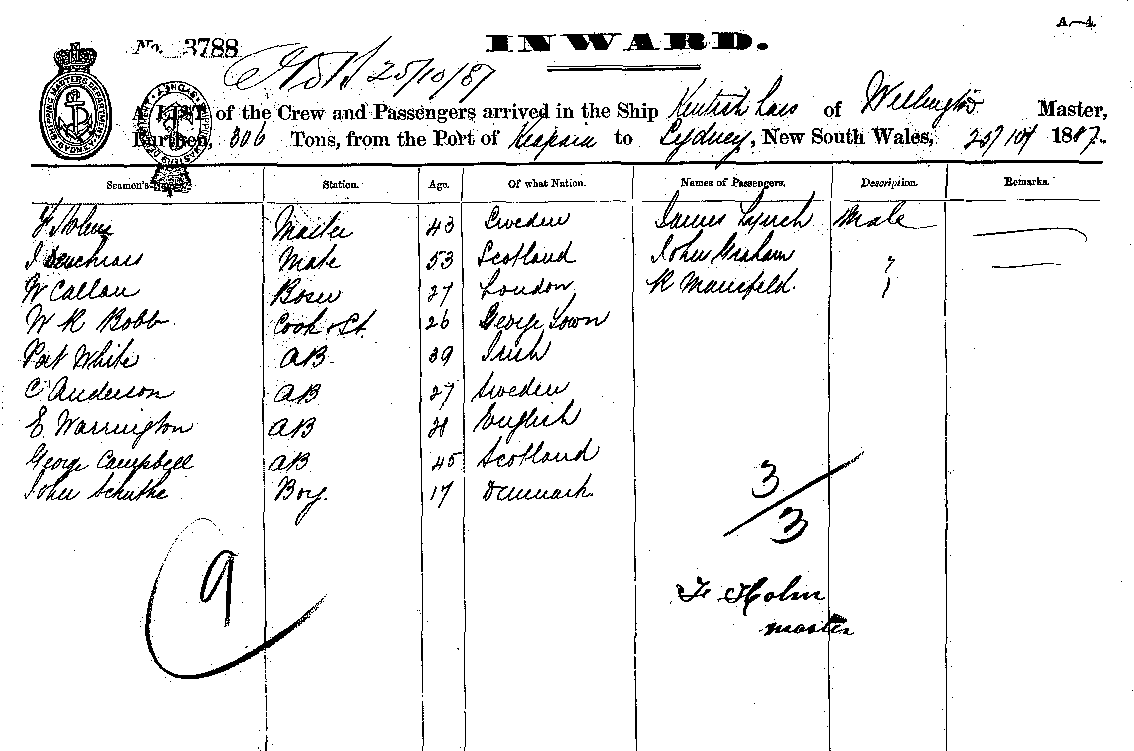 A—4.
No. 3788
INWARD.
25/10/87
A LIST of the Crew and Passengers arrived in the Ship Kentish Lass of Wellington Master,
Burthen, 306 Tons, from the Port of Kaipara to Sydney, New South Wales, 25/10/ 1887.
Seamen's Names. Station. Age. Of what Nation. Names of Passengers. Description. Remarks.
F Holm Master 43 Sweden James Lynch Male
J Mate 53 Scotland John Graham "
W Callan Bosn 27 London R Mansfield "
W R Robb Cook & St. 26 George Town
Pat White AB 39 Irish
C Anderson AB 27 Sweden
E. Warrington AB English
George Campbell AB 45 Scotland
John Schuthe Boy 17 Denmark
3/3
9
F Holm
master